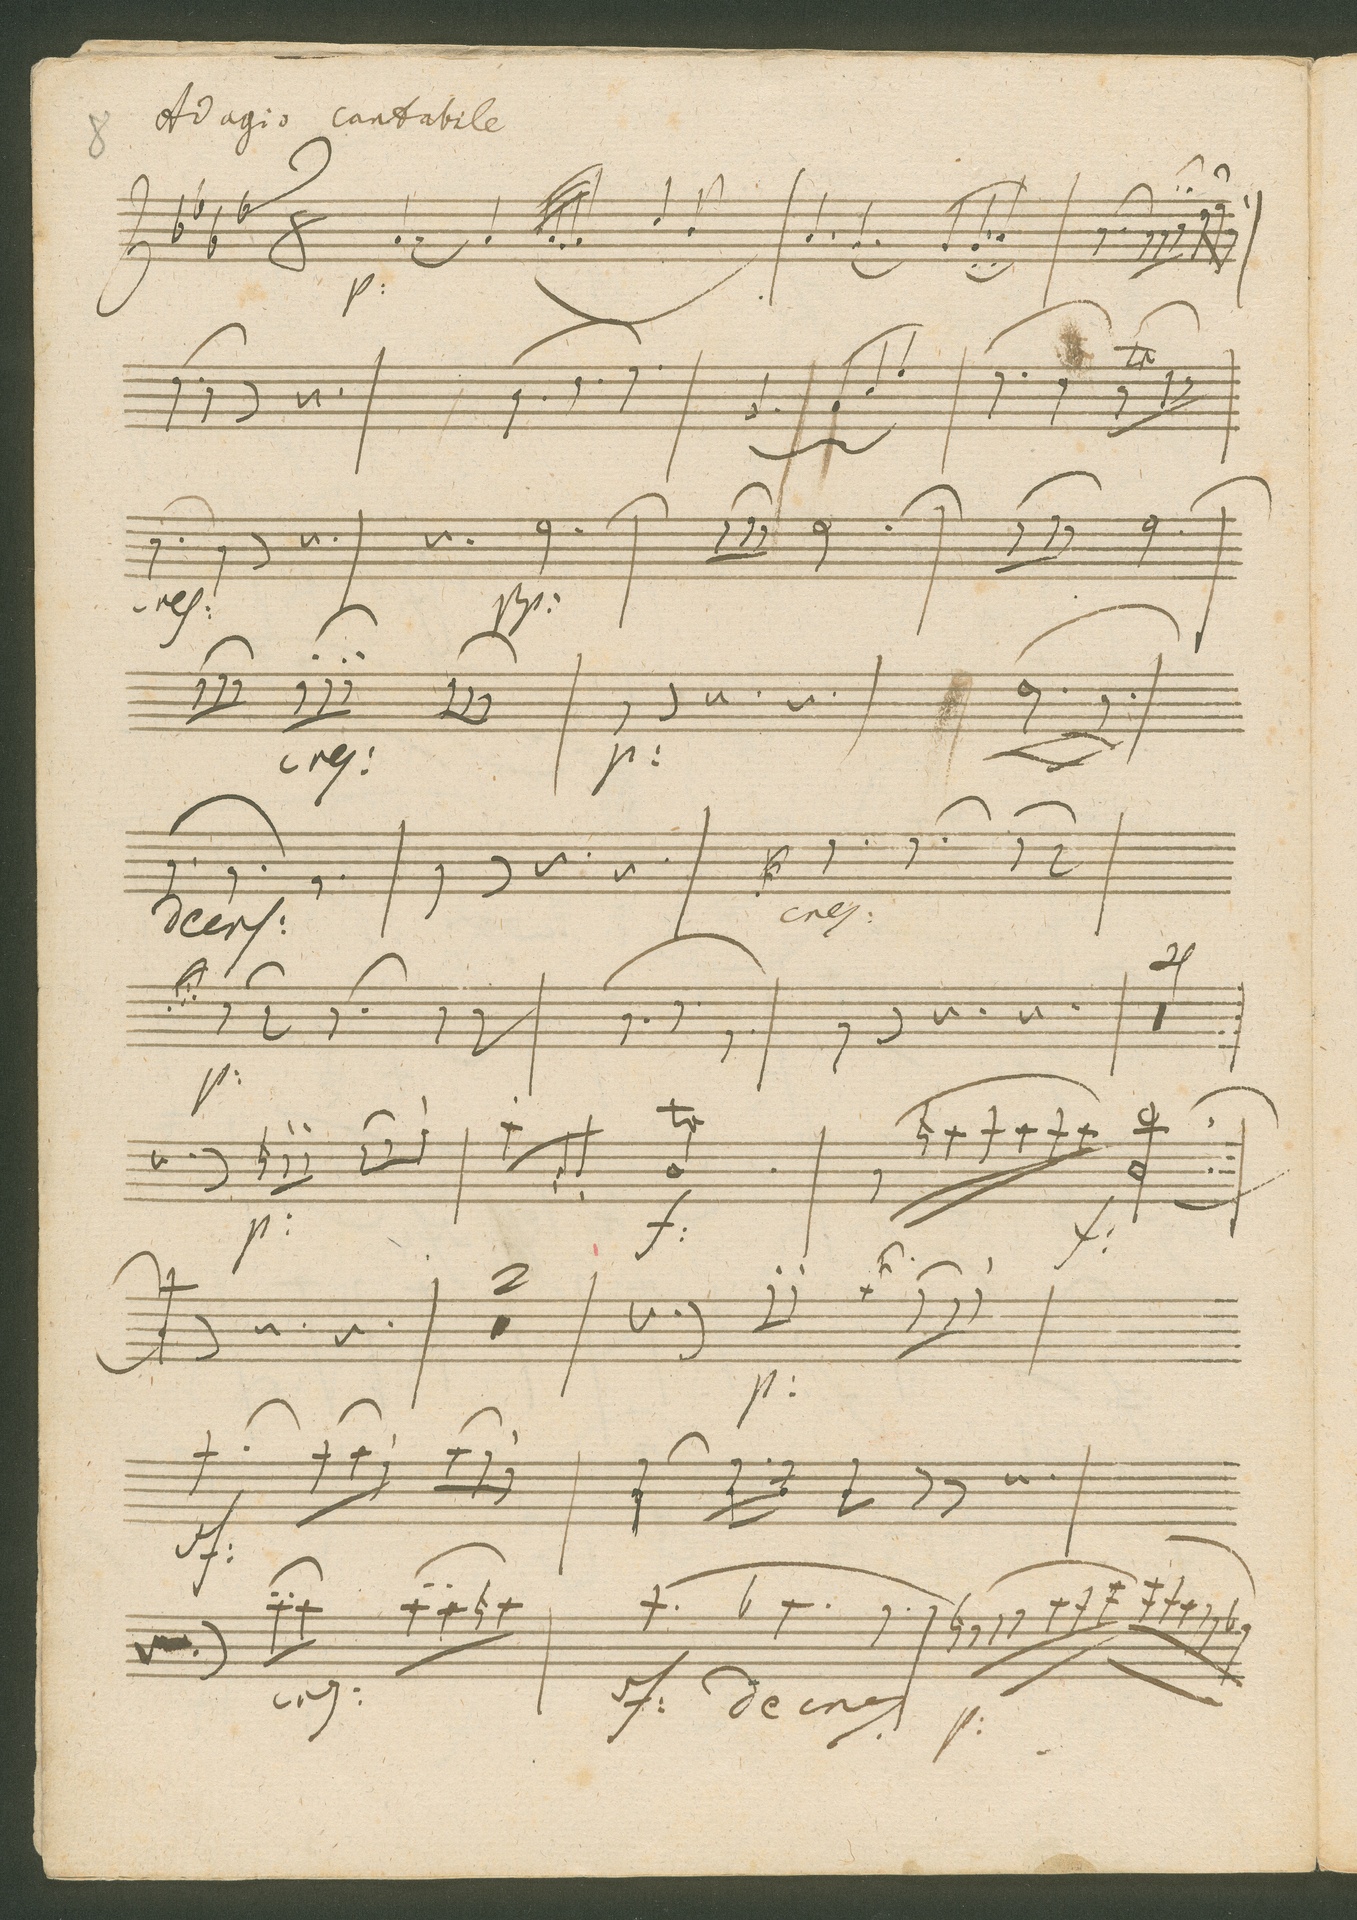 8 Adagio cantabile
p:
tr
cres: pp:
cres: p:
decres: cres:
p: 2
tr
p: f: f:
2
p:
sf:
cres: sf: decres p: